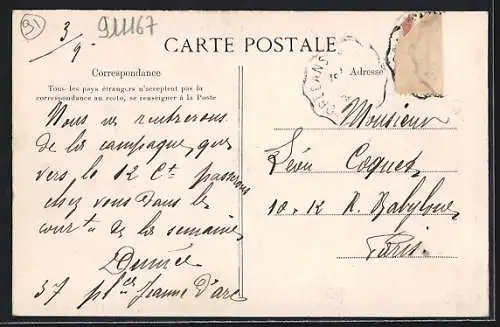 91
3/9
911167
CARTE POSTALE
Correspondance
Tous les pays étrangers n'acceptent pas la
correspondance au recto, se renseigner à la Poste
Adresse
ORLEANS
Nous ne rentrerons
de la campagne que
vers le 12 Ct passerons
chez vous dans le
court de la semaine
37 place Jeanne d'arc
Monsieur
Léon Coquet
10-12 R. Babylone
Paris.